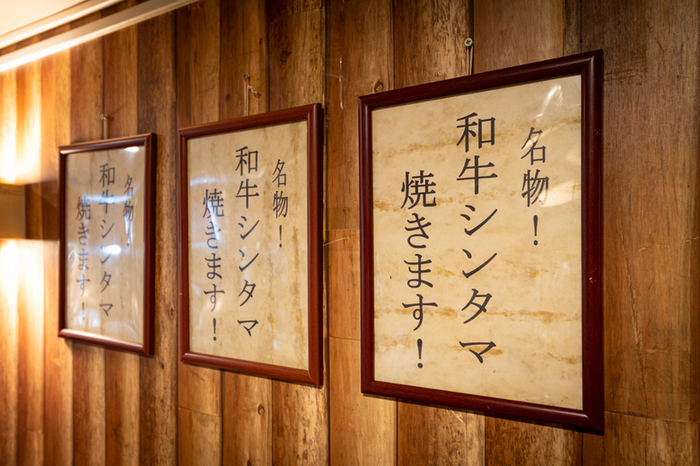 名物！
和牛シンタマ
焼きます！
名物！
和牛シンタマ
焼きます！
名物！
和牛シンタマ
焼きます！